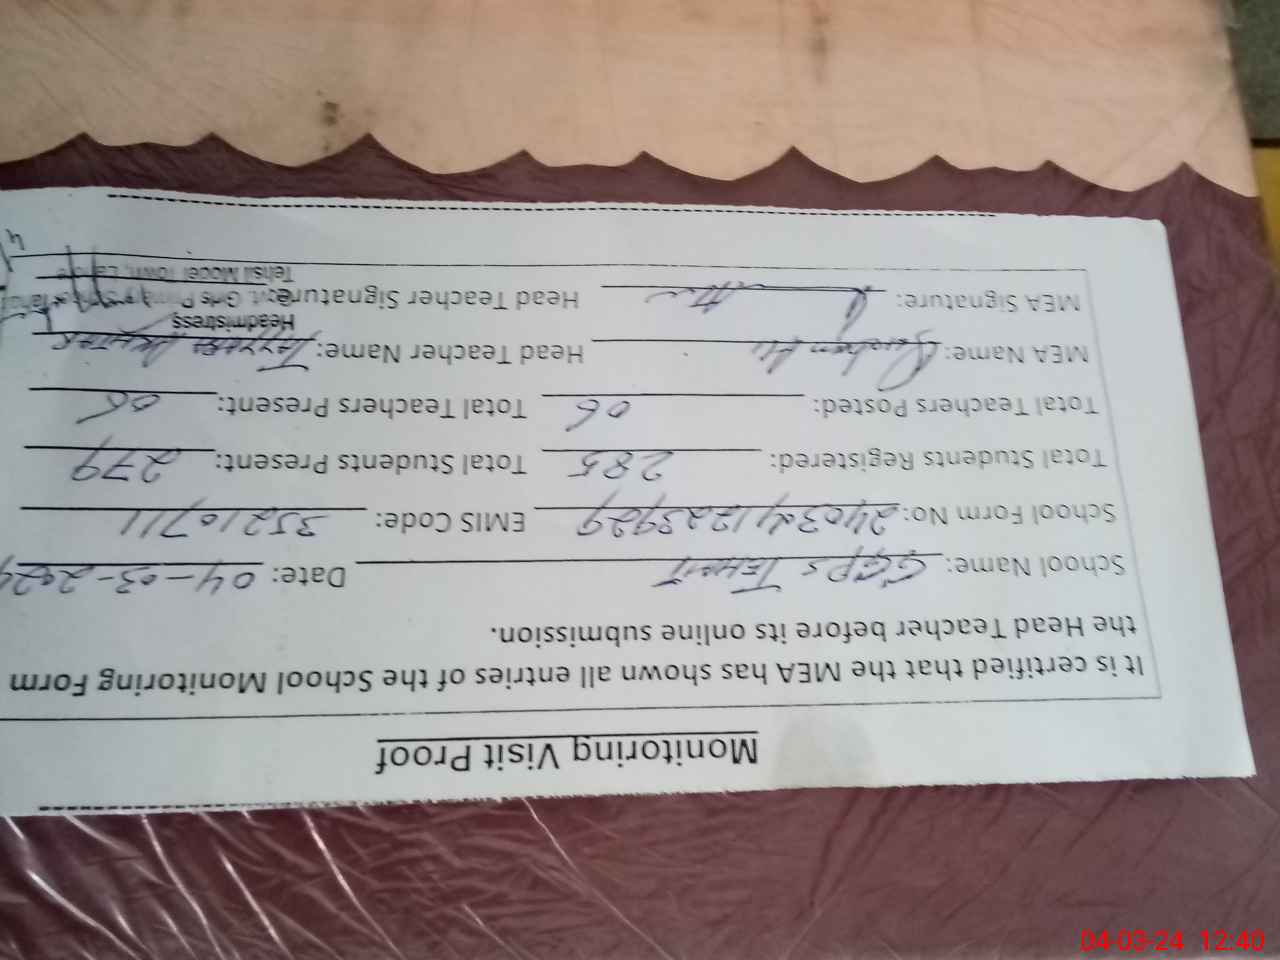 Monitoring Visit Proof
It is certified that the MEA has shown all entries of the School Monitoring Form
the Head Teacher before its online submission.
School Name: GGPS JEHAIT Date: 04-03-2024
School Form No: EMIS Code: 35210711
Total Students Registered: 285 Total Students Present: 279
Total Teachers Posted: 06 Total Teachers Present: 06
MEA Name: Ali Head Teacher Name: TAYYABA AKHTAR
Headmistress
MEA Signature: Head Teacher Signature: Govt. Girls Primary
Tehsil Model Town, Lahore
04-03-24 12:40